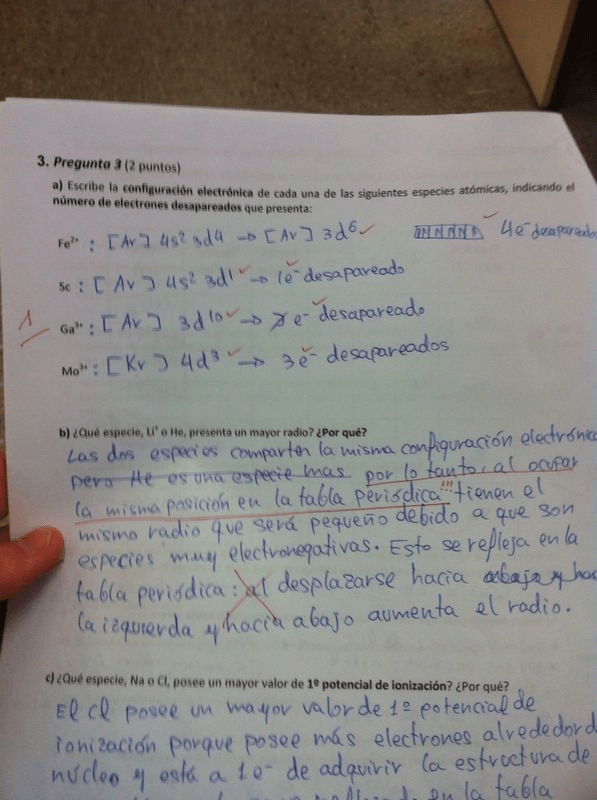 3. Pregunta 3 (2 puntos)
a) Escribe la configuración electrónica de cada una de las siguientes especies atómicas, indicando el
número de electrones desapareados que presenta:
Fe²⁺ : [Ar] 4s² 3d4 → [Ar] 3d⁶ ✓ 4e⁻ desapareados
Sc : [Ar] 4s² 3d¹ ✓ → 1e⁻ desapareado
1 Ga³⁺ : [Ar] 3d¹⁰ ✓ → e⁻ desapareado
Mo³⁺ : [Kr] 4d³ ✓ → 3e⁻ desapareados
b) ¿Qué especie, Li⁺ o He, presenta un mayor radio? ¿Por qué?
Las dos especies comparten la misma configuración electrónica
pero He es una especie mas por lo tanto, al ocupar
la misma posición en la tabla periódica !!! tienen el
mismo radio que será pequeño debido a que son
especies muy electronegativas. Esto se refleja en la
tabla periódica: al desplazarse hacia abajo y hac
la izquierda y hacia abajo aumenta el radio.
c) ¿Qué especie, Na o Cl, posee un mayor valor de 1º potencial de ionización? ¿Por qué?
El Cl posee un mayor valor de 1º potencial de
ionización porque posee más electrones alrededor d
núcleo y está a 1e⁻ de adquirir la estructura de
en la tabla